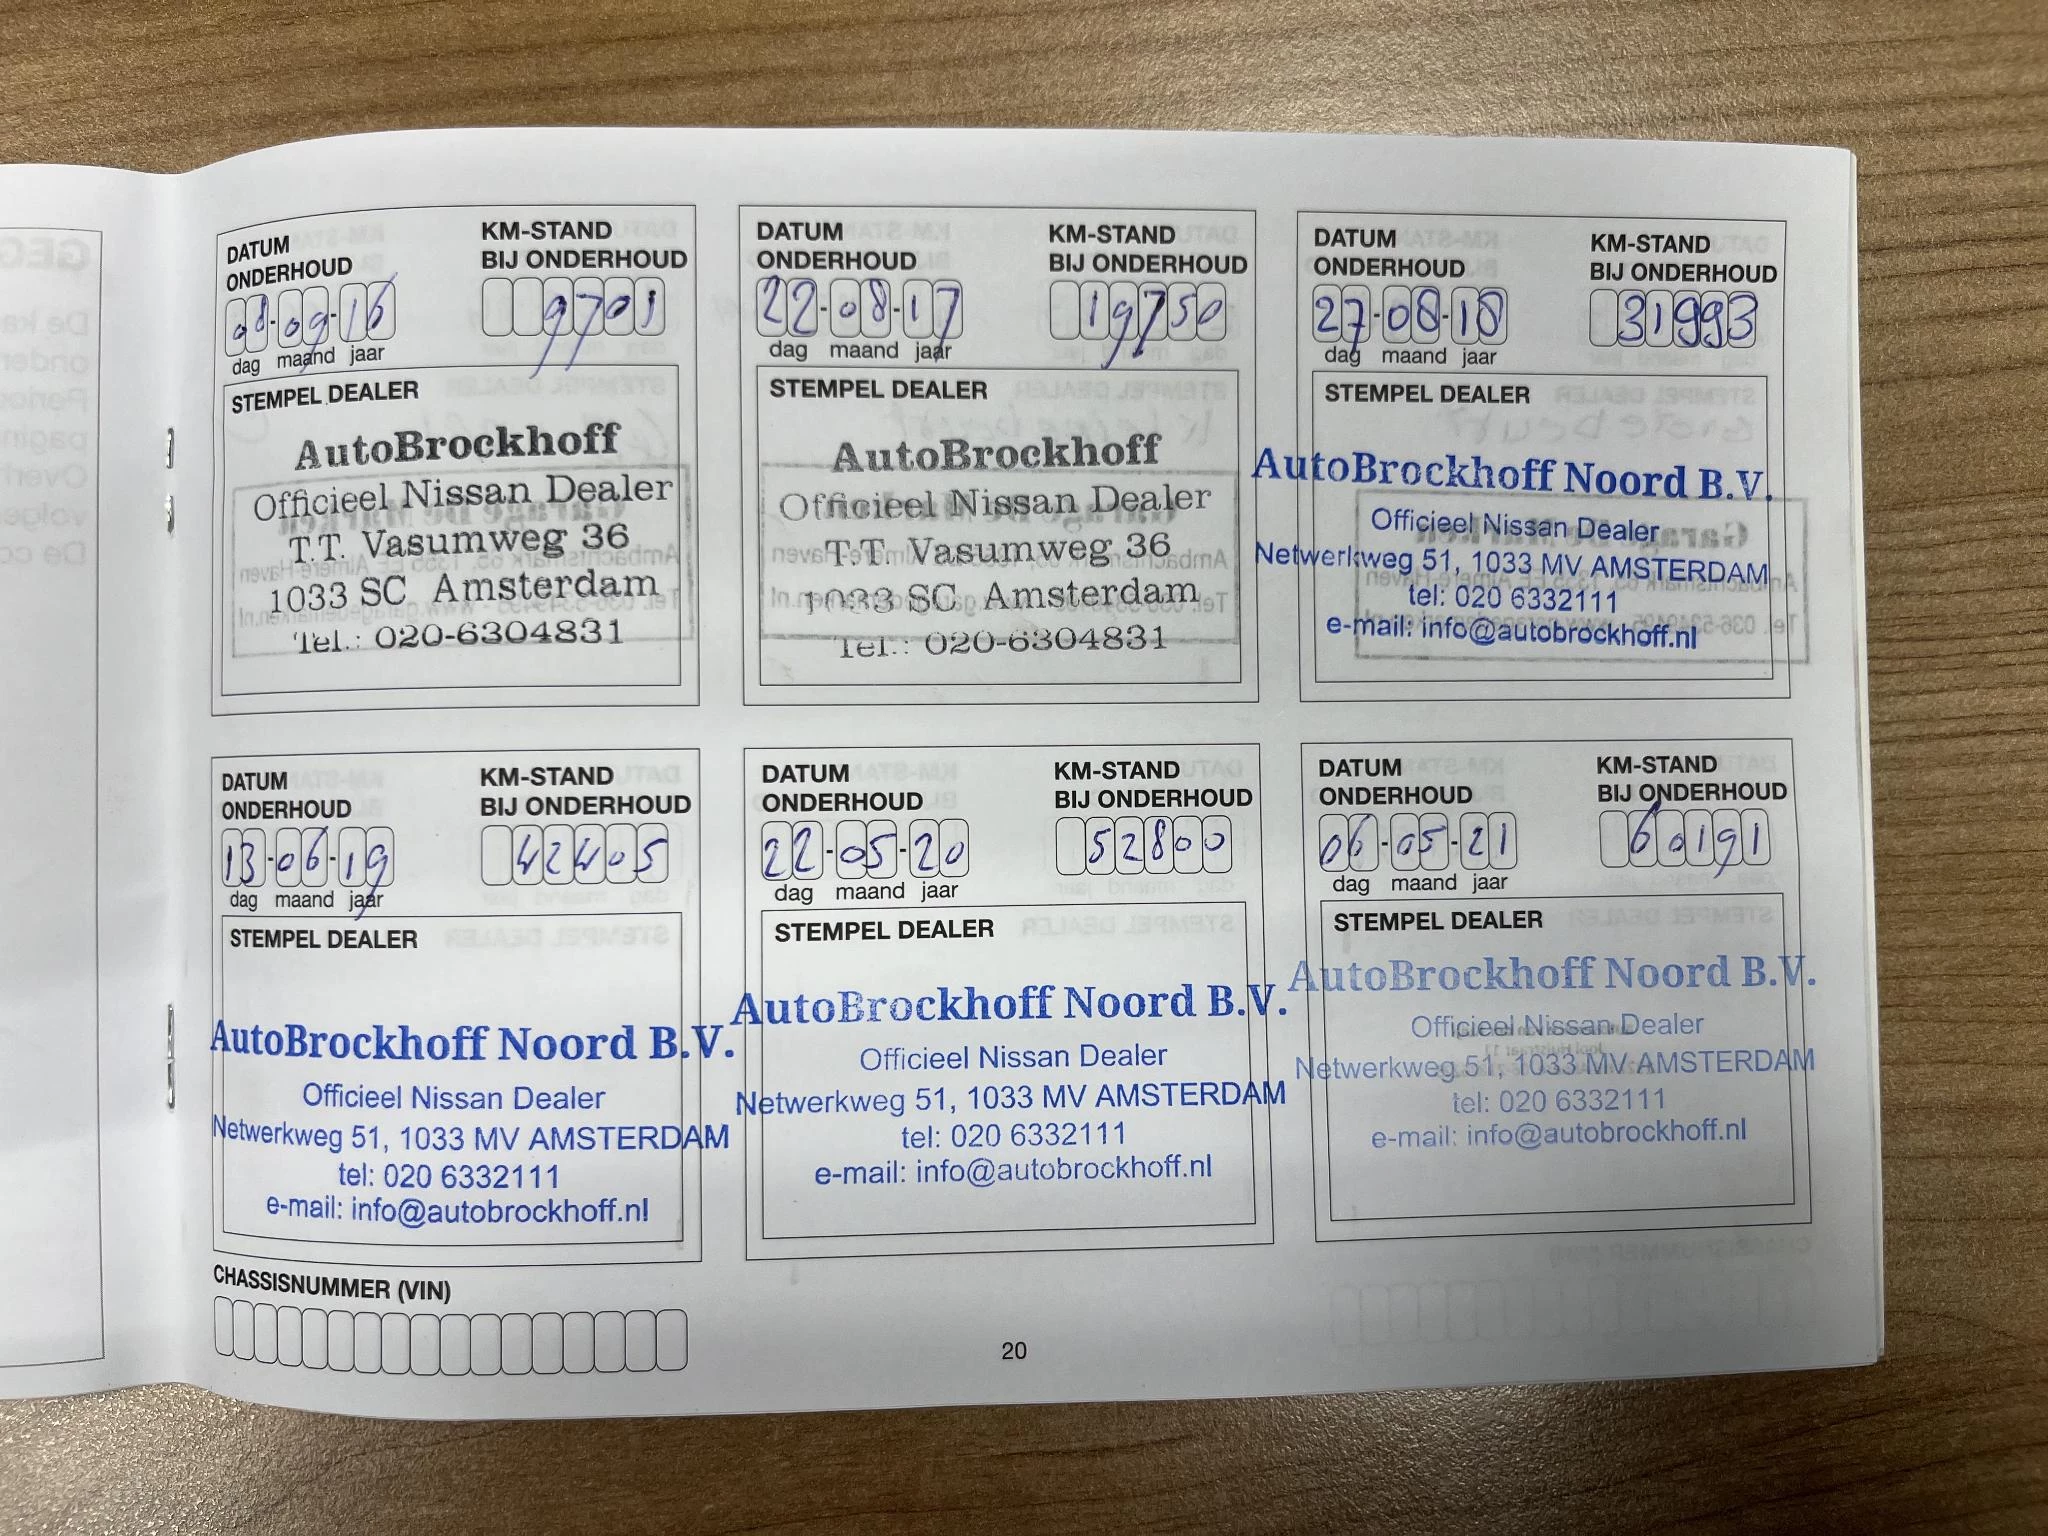 DATUM
ONDERHOUD
KM-STAND
BIJ ONDERHOUD
08-09-16
9701
dag maand jaar
STEMPEL DEALER
AutoBrockhoff
Officieel Nissan Dealer
T.T. Vasumweg 36
1033 SC Amsterdam
Tel.: 020-6304831
DATUM
ONDERHOUD
KM-STAND
BIJ ONDERHOUD
22-08-17
19750
dag maand jaar
STEMPEL DEALER
AutoBrockhoff
Officieel Nissan Dealer
T.T. Vasumweg 36
1033 SC Amsterdam
Tel.: 020-6304831
DATUM
ONDERHOUD
KM-STAND
BIJ ONDERHOUD
27-08-18
31993
dag maand jaar
STEMPEL DEALER
AutoBrockhoff Noord B.V.
Officieel Nissan Dealer
Netwerkweg 51, 1033 MV AMSTERDAM
tel: 020 6332111
e-mail: info@autobrockhoff.nl
DATUM
ONDERHOUD
KM-STAND
BIJ ONDERHOUD
13-06-19
42405
dag maand jaar
STEMPEL DEALER
AutoBrockhoff Noord B.V.
Officieel Nissan Dealer
Netwerkweg 51, 1033 MV AMSTERDAM
tel: 020 6332111
e-mail: info@autobrockhoff.nl
DATUM
ONDERHOUD
KM-STAND
BIJ ONDERHOUD
22-05-20
52800
dag maand jaar
STEMPEL DEALER
AutoBrockhoff Noord B.V.
Officieel Nissan Dealer
Netwerkweg 51, 1033 MV AMSTERDAM
tel: 020 6332111
e-mail: info@autobrockhoff.nl
DATUM
ONDERHOUD
KM-STAND
BIJ ONDERHOUD
06-05-21
60191
dag maand jaar
STEMPEL DEALER
AutoBrockhoff Noord B.V.
Officieel Nissan Dealer
Netwerkweg 51, 1033 MV AMSTERDAM
tel: 020 6332111
e-mail: info@autobrockhoff.nl
CHASSISNUMMER (VIN)
20